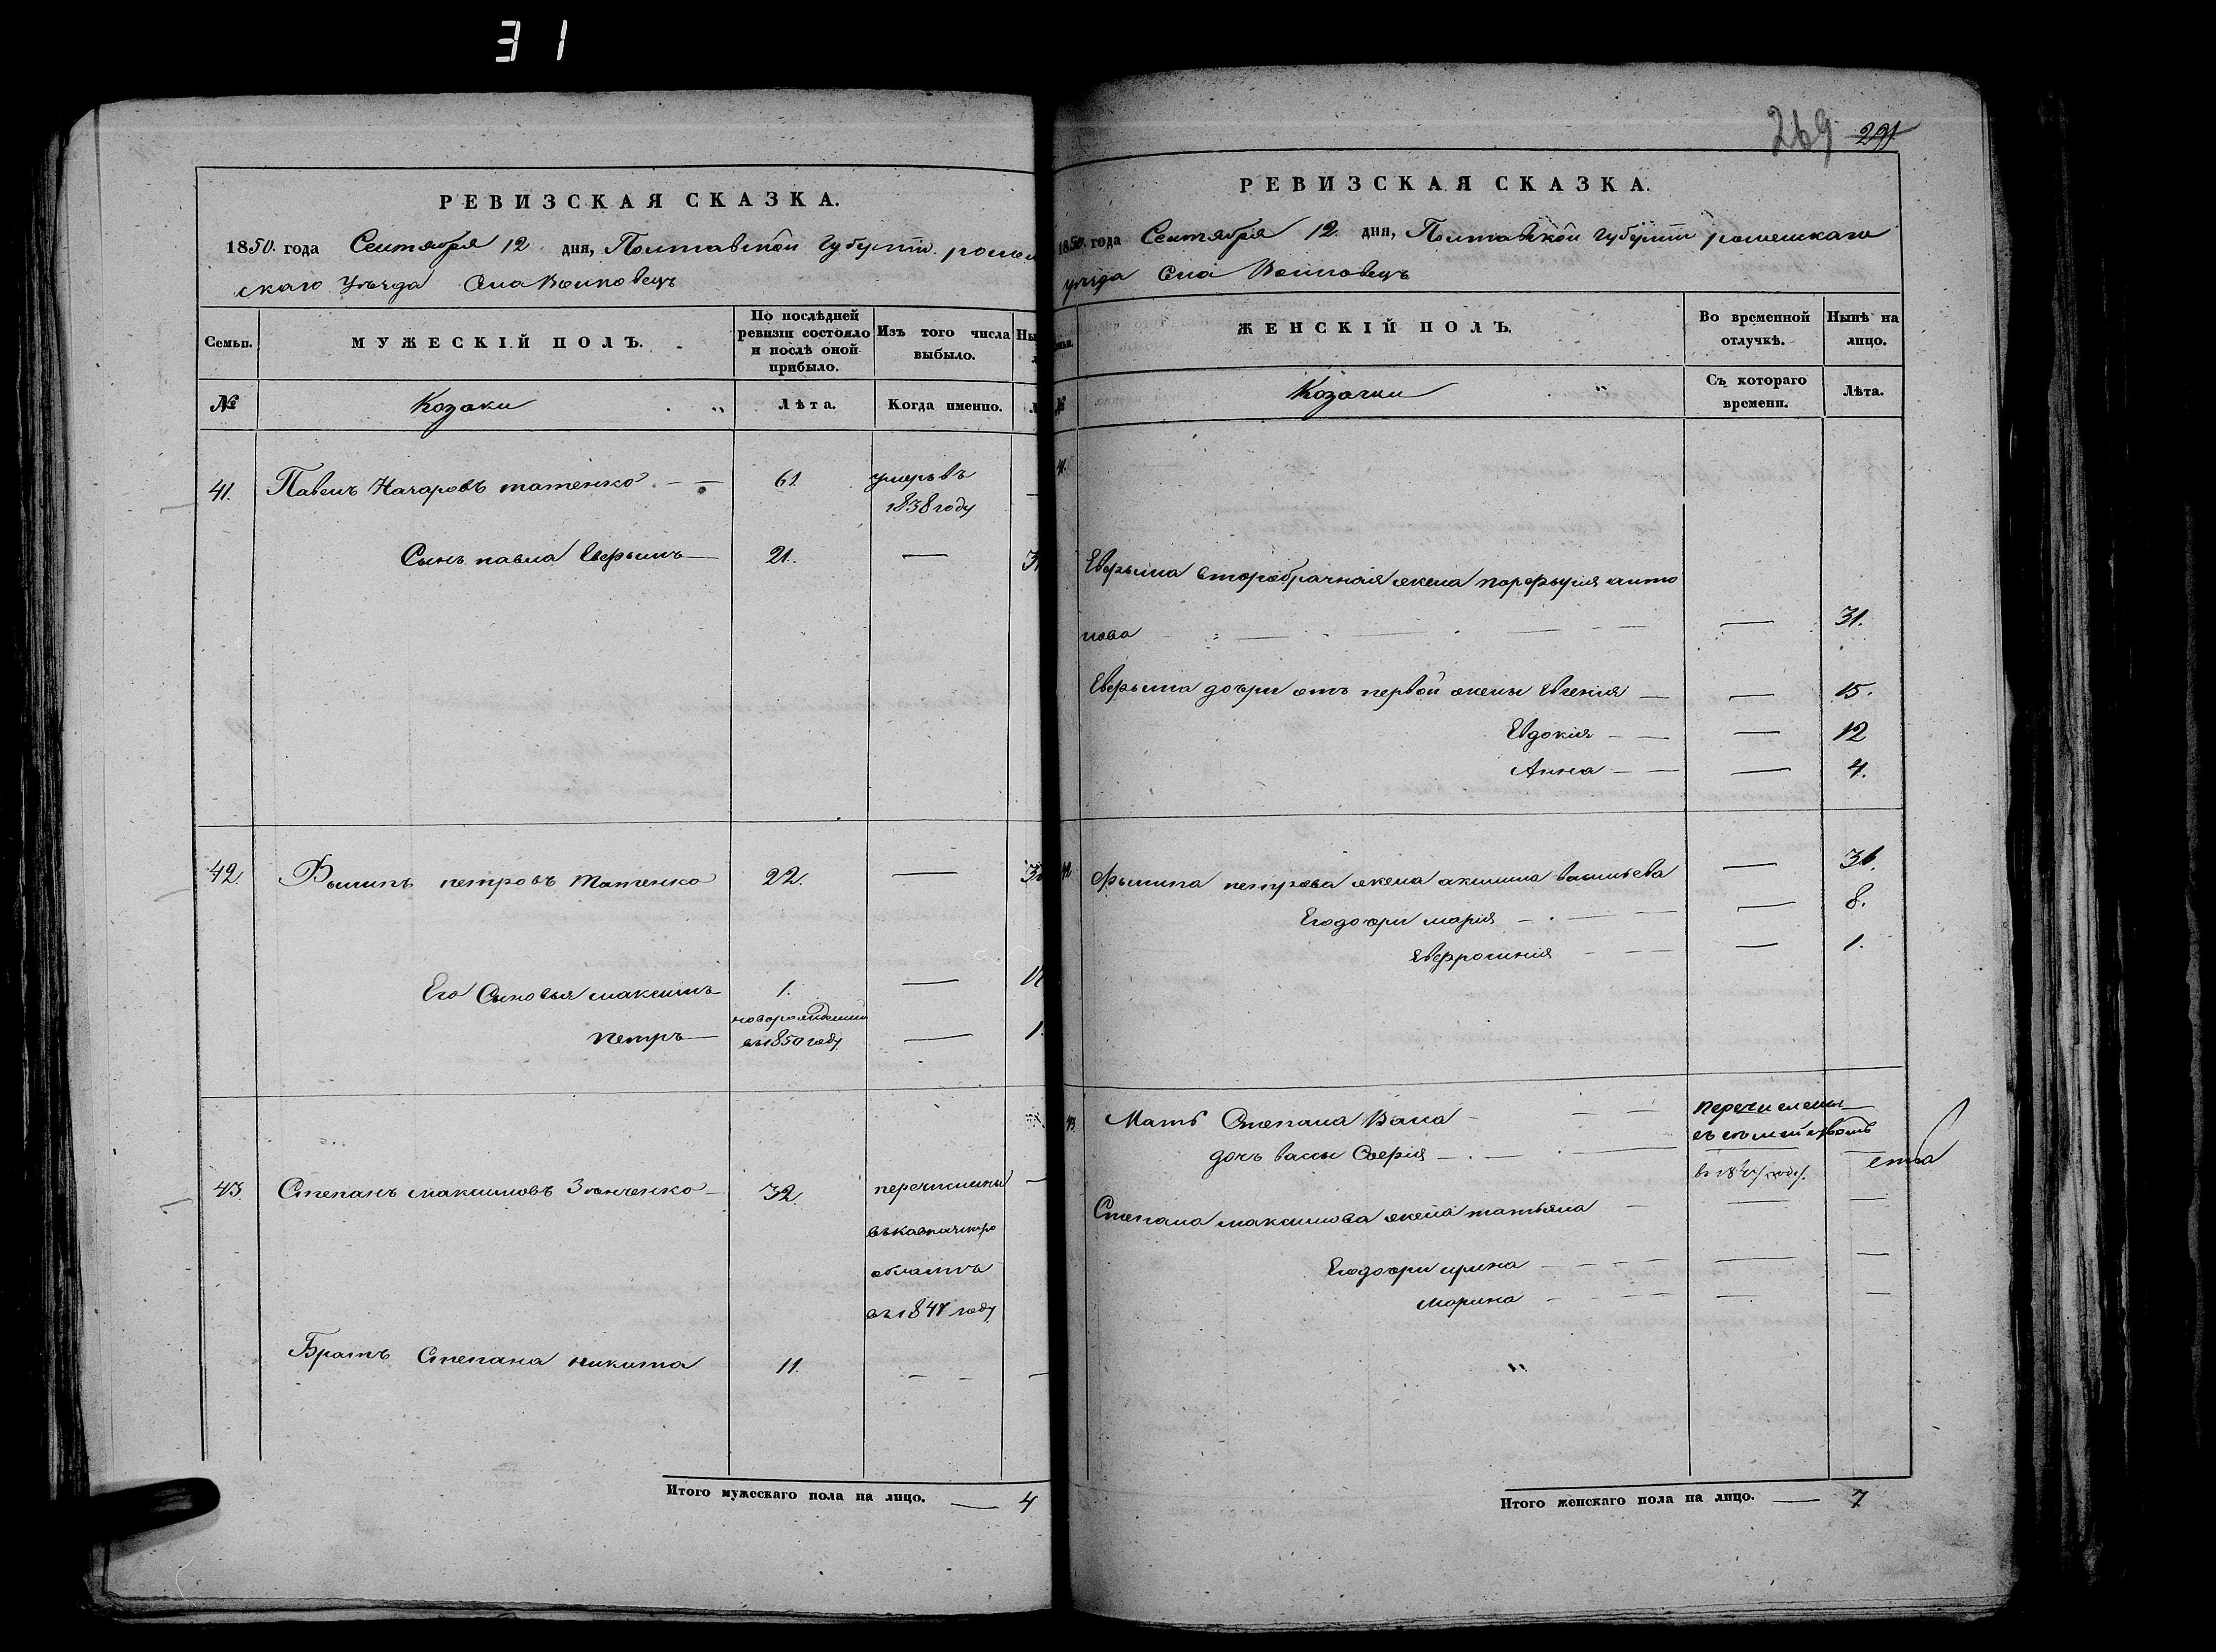 31
РЕВИЗСКАЯ СКАЗКА.
1850. года Сентября 12 дня, Полтавской Губерніи ромен
скаго уѣзда Села Волковецъ
Семьи.
МУЖЕСКІЙ ПОЛЪ.
По послѣдней ревизіи состояло и послѣ оной прибыло.
Изъ того числа выбыло.
№
Козаки
Лѣта.
Когда именно.
41. Павелъ Назаровъ татенко 61. умеръ въ
1838 году
Сынъ павла Евфымъ 21. — 31
42. Фылипъ петровъ Татенко 22. —
Его Сыновья максимъ 1. —
новорожденны
петръ въ 1850 году — 1.
43. Степанъ максимовъ Зѣнченко 32. перечислены
въ кавказскую
область
въ 1847 году
Братъ Степана никита 11.
Итого мужескаго пола на лицо. — 4
269 291
РЕВИЗСКАЯ СКАЗКА.
1850. года Сентября 12. дня, Полтавской Губерніи роменскаго
уѣзда Села Волковецъ
ЖЕНСКІЙ ПОЛЪ.
Во временной отлучкѣ.
Нынѣ на лицо.
№
Козачки
Съ котораго времени.
Лѣта.
41.
Евфыма второбрачная жена порфырія анто
нова — 31.
Евфыма дочери отъ первой жены Евгенія — 15.
Евдокія — 12
Анна — 4.
42 Фылипа петрова жена акилина васильева — 31.
Его дочери марія — 8.
Евфросинія — 1.
43. Мать Степана Васа перечислены
съ семействомъ
дочь васы Софія
въ 1847 году.
Степана максимова жена татьяна — —
Его дочери ирина — —
марина — —
Итого женскаго пола на лицо. — 7